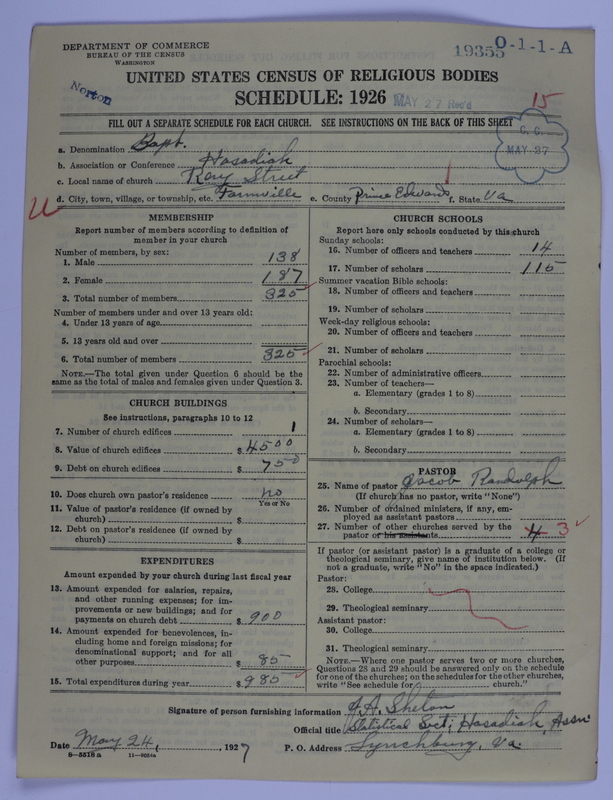 DEPARTMENT OF COMMERCE
BUREAU OF THE CENSUS
WASHINGTON
19355 O-1-1-A
Norton
UNITED STATES CENSUS OF RELIGIOUS BODIES
SCHEDULE: 1926
MAY 27 Rec'd
15
FILL OUT A SEPARATE SCHEDULE FOR EACH CHURCH. SEE INSTRUCTIONS ON THE BACK OF THIS SHEET
C. C.
MAY-27
a. Denomination Bapt.
b. Association or Conference Hasadiah
c. Local name of church Race Street
d. City, town, village, or township, etc. Farmville e. County Prince Edward f. State Va
MEMBERSHIP
Report number of members according to definition of
member in your church
Number of members, by sex:
1. Male 138
2. Female 187
3. Total number of members 325
Number of members under and over 13 years old:
4. Under 13 years of age
5. 13 years old and over
6. Total number of members 325
NOTE.—The total given under Question 6 should be the
same as the total of males and females given under Question 3.
CHURCH BUILDINGS
See instructions, paragraphs 10 to 12
7. Number of church edifices 1
8. Value of church edifices $ 4500
9. Debt on church edifices $ 750
10. Does church own pastor's residence no
Yes or No
11. Value of pastor's residence (if owned by
church) $
12. Debt on pastor's residence (if owned by
church) $
EXPENDITURES
Amount expended by your church during last fiscal year
13. Amount expended for salaries, repairs,
and other running expenses; for im-
provements or new buildings; and for
payments on church debt $ 900
14. Amount expended for benevolences, in-
cluding home and foreign missions; for
denominational support; and for all
other purposes $ 85
15. Total expenditures during year $ 985
CHURCH SCHOOLS
Report here only schools conducted by this church
Sunday schools:
16. Number of officers and teachers 14
17. Number of scholars 115
Summer vacation Bible schools:
18. Number of officers and teachers
19. Number of scholars
Week-day religious schools:
20. Number of officers and teachers
21. Number of scholars
Parochial schools:
22. Number of administrative officers
23. Number of teachers—
a. Elementary (grades 1 to 8)
b. Secondary
24. Number of scholars—
a. Elementary (grades 1 to 8)
b. Secondary
PASTOR
25. Name of pastor Jacob Randolph
(If church has no pastor, write "None")
26. Number of ordained ministers, if any, em-
ployed as assistant pastors
27. Number of other churches served by the
pastor or his assistants 4 3
If pastor (or assistant pastor) is a graduate of a college or
theological seminary, give name of institution below. (If
not a graduate, write "No" in the space indicated.)
Pastor:
28. College
29. Theological seminary
Assistant pastor:
30. College
31. Theological seminary
NOTE.—Where one pastor serves two or more churches,
Questions 28 and 29 should be answered only on the schedule
for one of the churches; on the schedules for the other churches,
write "See schedule for church."
Signature of person furnishing information Shelton
Official title Statistical Sect; Hasadiah Assn.
Date May 24, 1927 P. O. Address Lynchburg, Va.
8—5518a 11—9664a